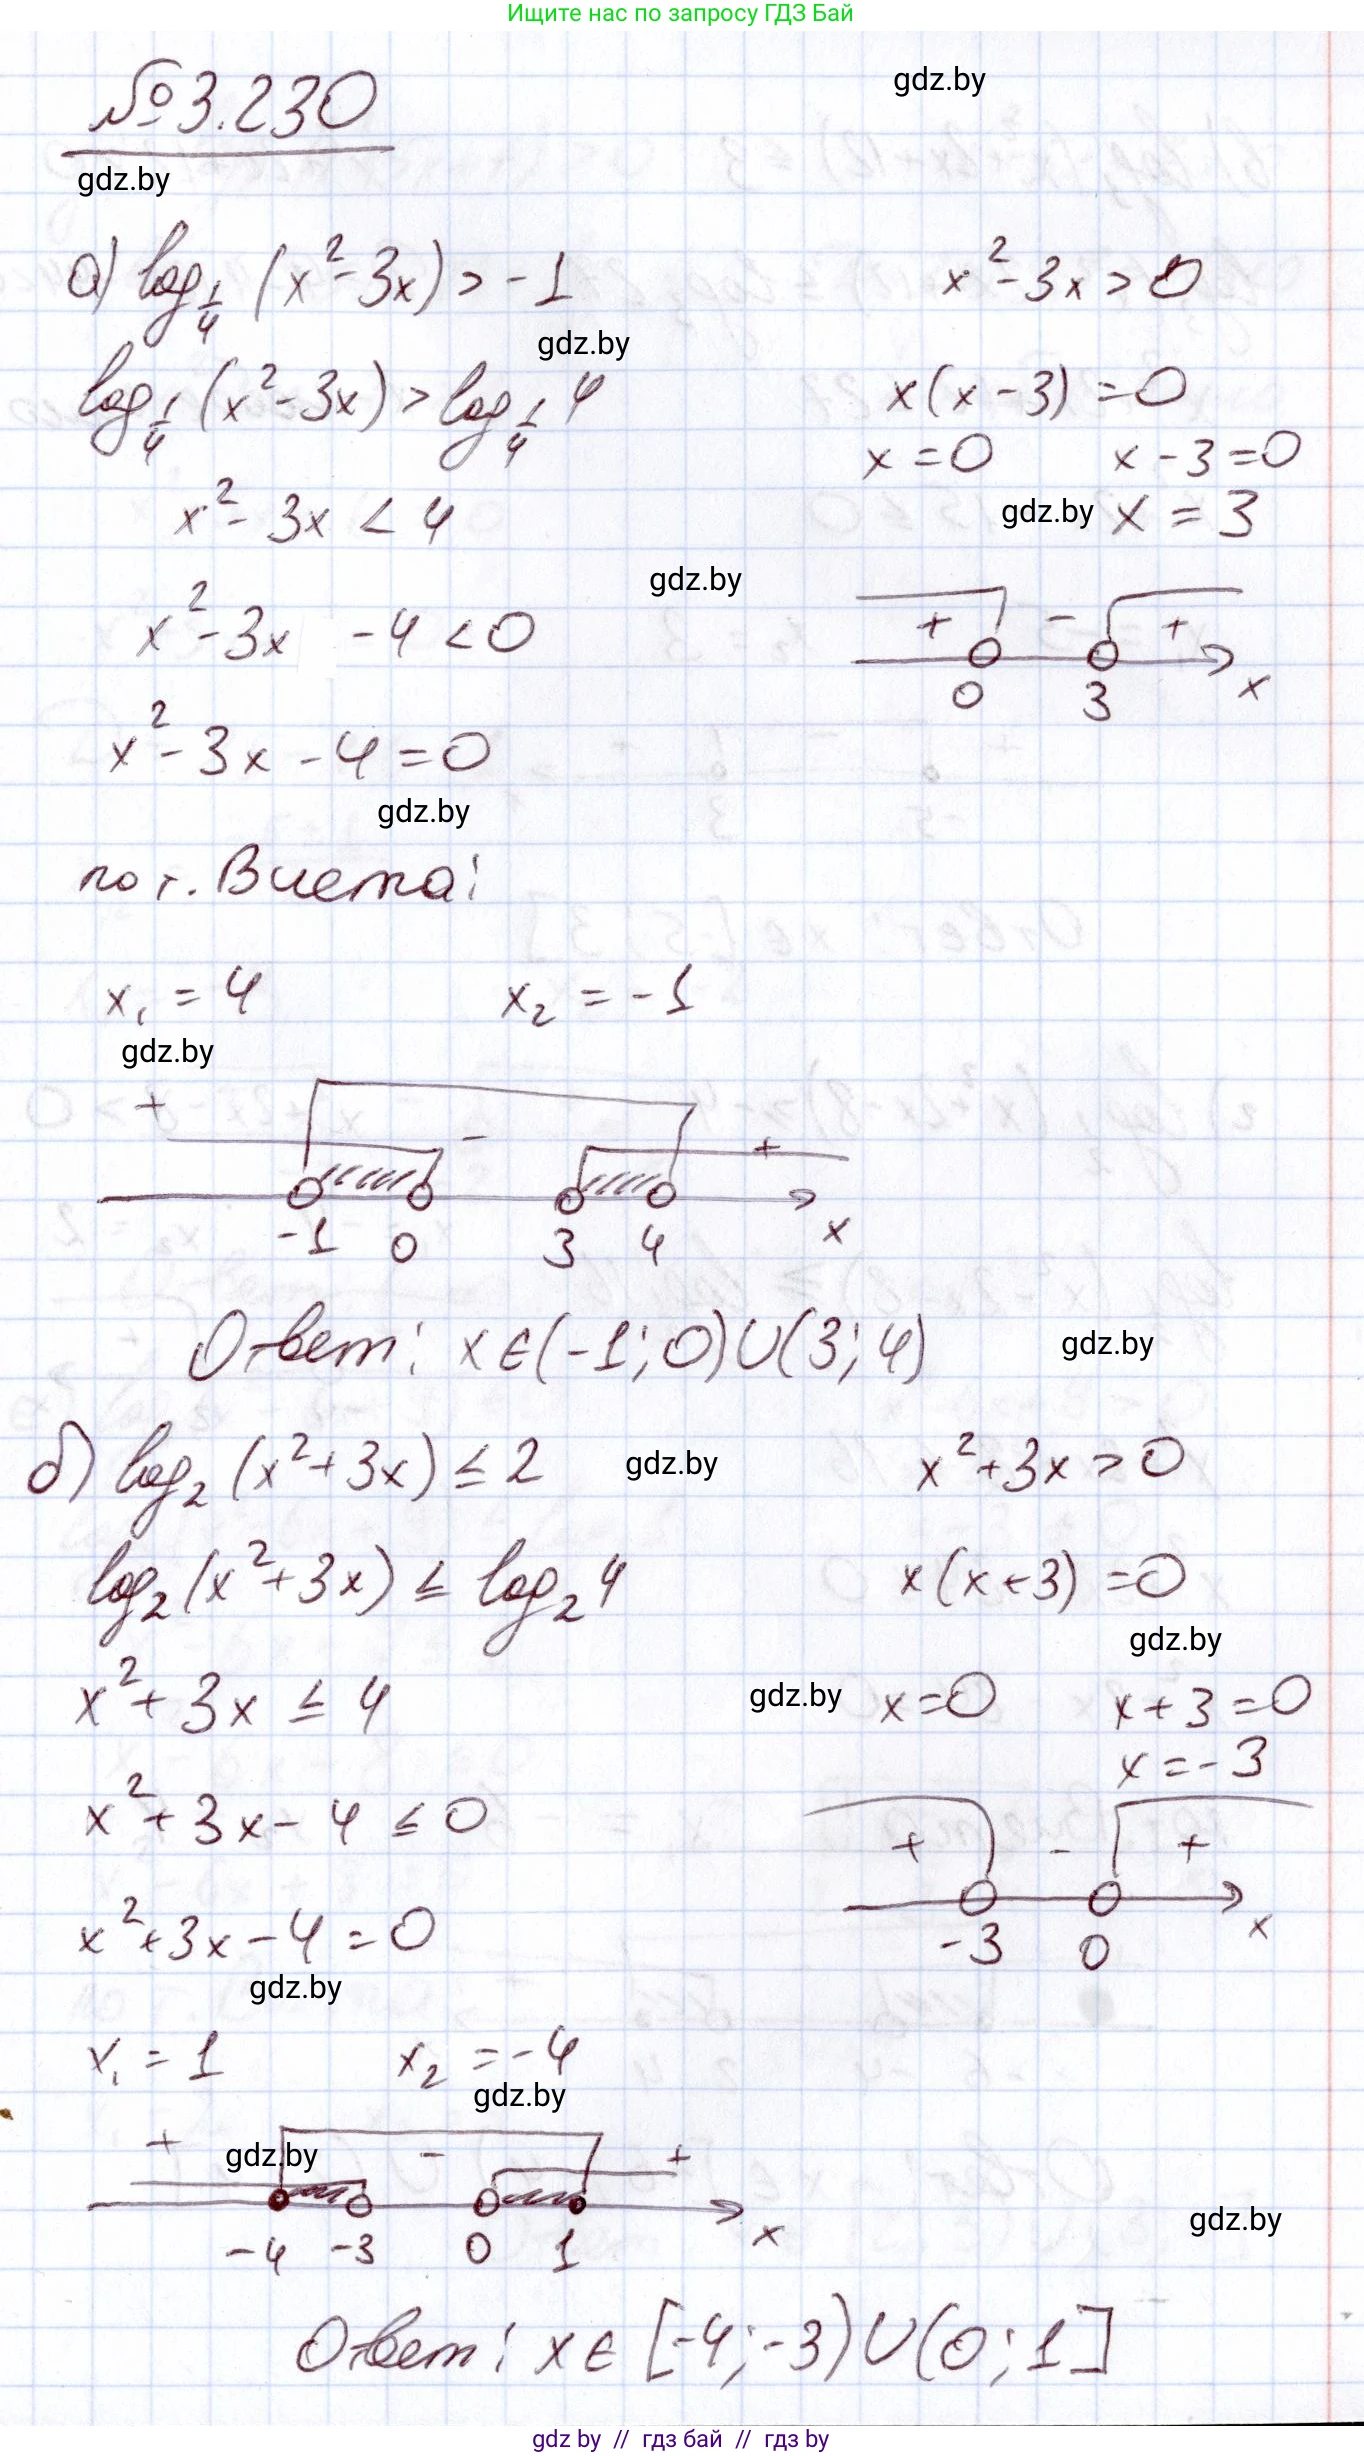 Ищите нас по запросу ГДЗ Бай
№3.230
gdz.by
gdz.by
а) log_{1/4} (x² - 3x) > -1
x² - 3x > 0
gdz.by
log_{1/4} (x² - 3x) > log_{1/4} 4
x(x - 3) = 0
x = 0 x - 3 = 0
x² - 3x < 4
gdz.by x = 3
gdz.by
x² - 3x - 4 < 0
+ - +
0 3 x
x² - 3x - 4 = 0
gdz.by
по т. Виета:
x₁ = 4 x₂ = -1
gdz.by
+ - +
-1 0 3 4 x
Ответ: x ∈ (-1; 0) ∪ (3; 4)
gdz.by
б) log₂ (x² + 3x) ≤ 2
gdz.by
x² + 3x > 0
log₂ (x² + 3x) ≤ log₂ 4
x(x + 3) = 0
gdz.by
x² + 3x ≤ 4
gdz.by
x = 0 x + 3 = 0
x = -3
x² + 3x - 4 ≤ 0
+ - +
-3 0 x
x² + 3x - 4 = 0
gdz.by
x₁ = 1 x₂ = -4
gdz.by
+ gdz.by - +
-4 -3 0 1 x
gdz.by
Ответ: x ∈ [-4; -3) ∪ (0; 1]
gdz.by // гдз бай // гдз by